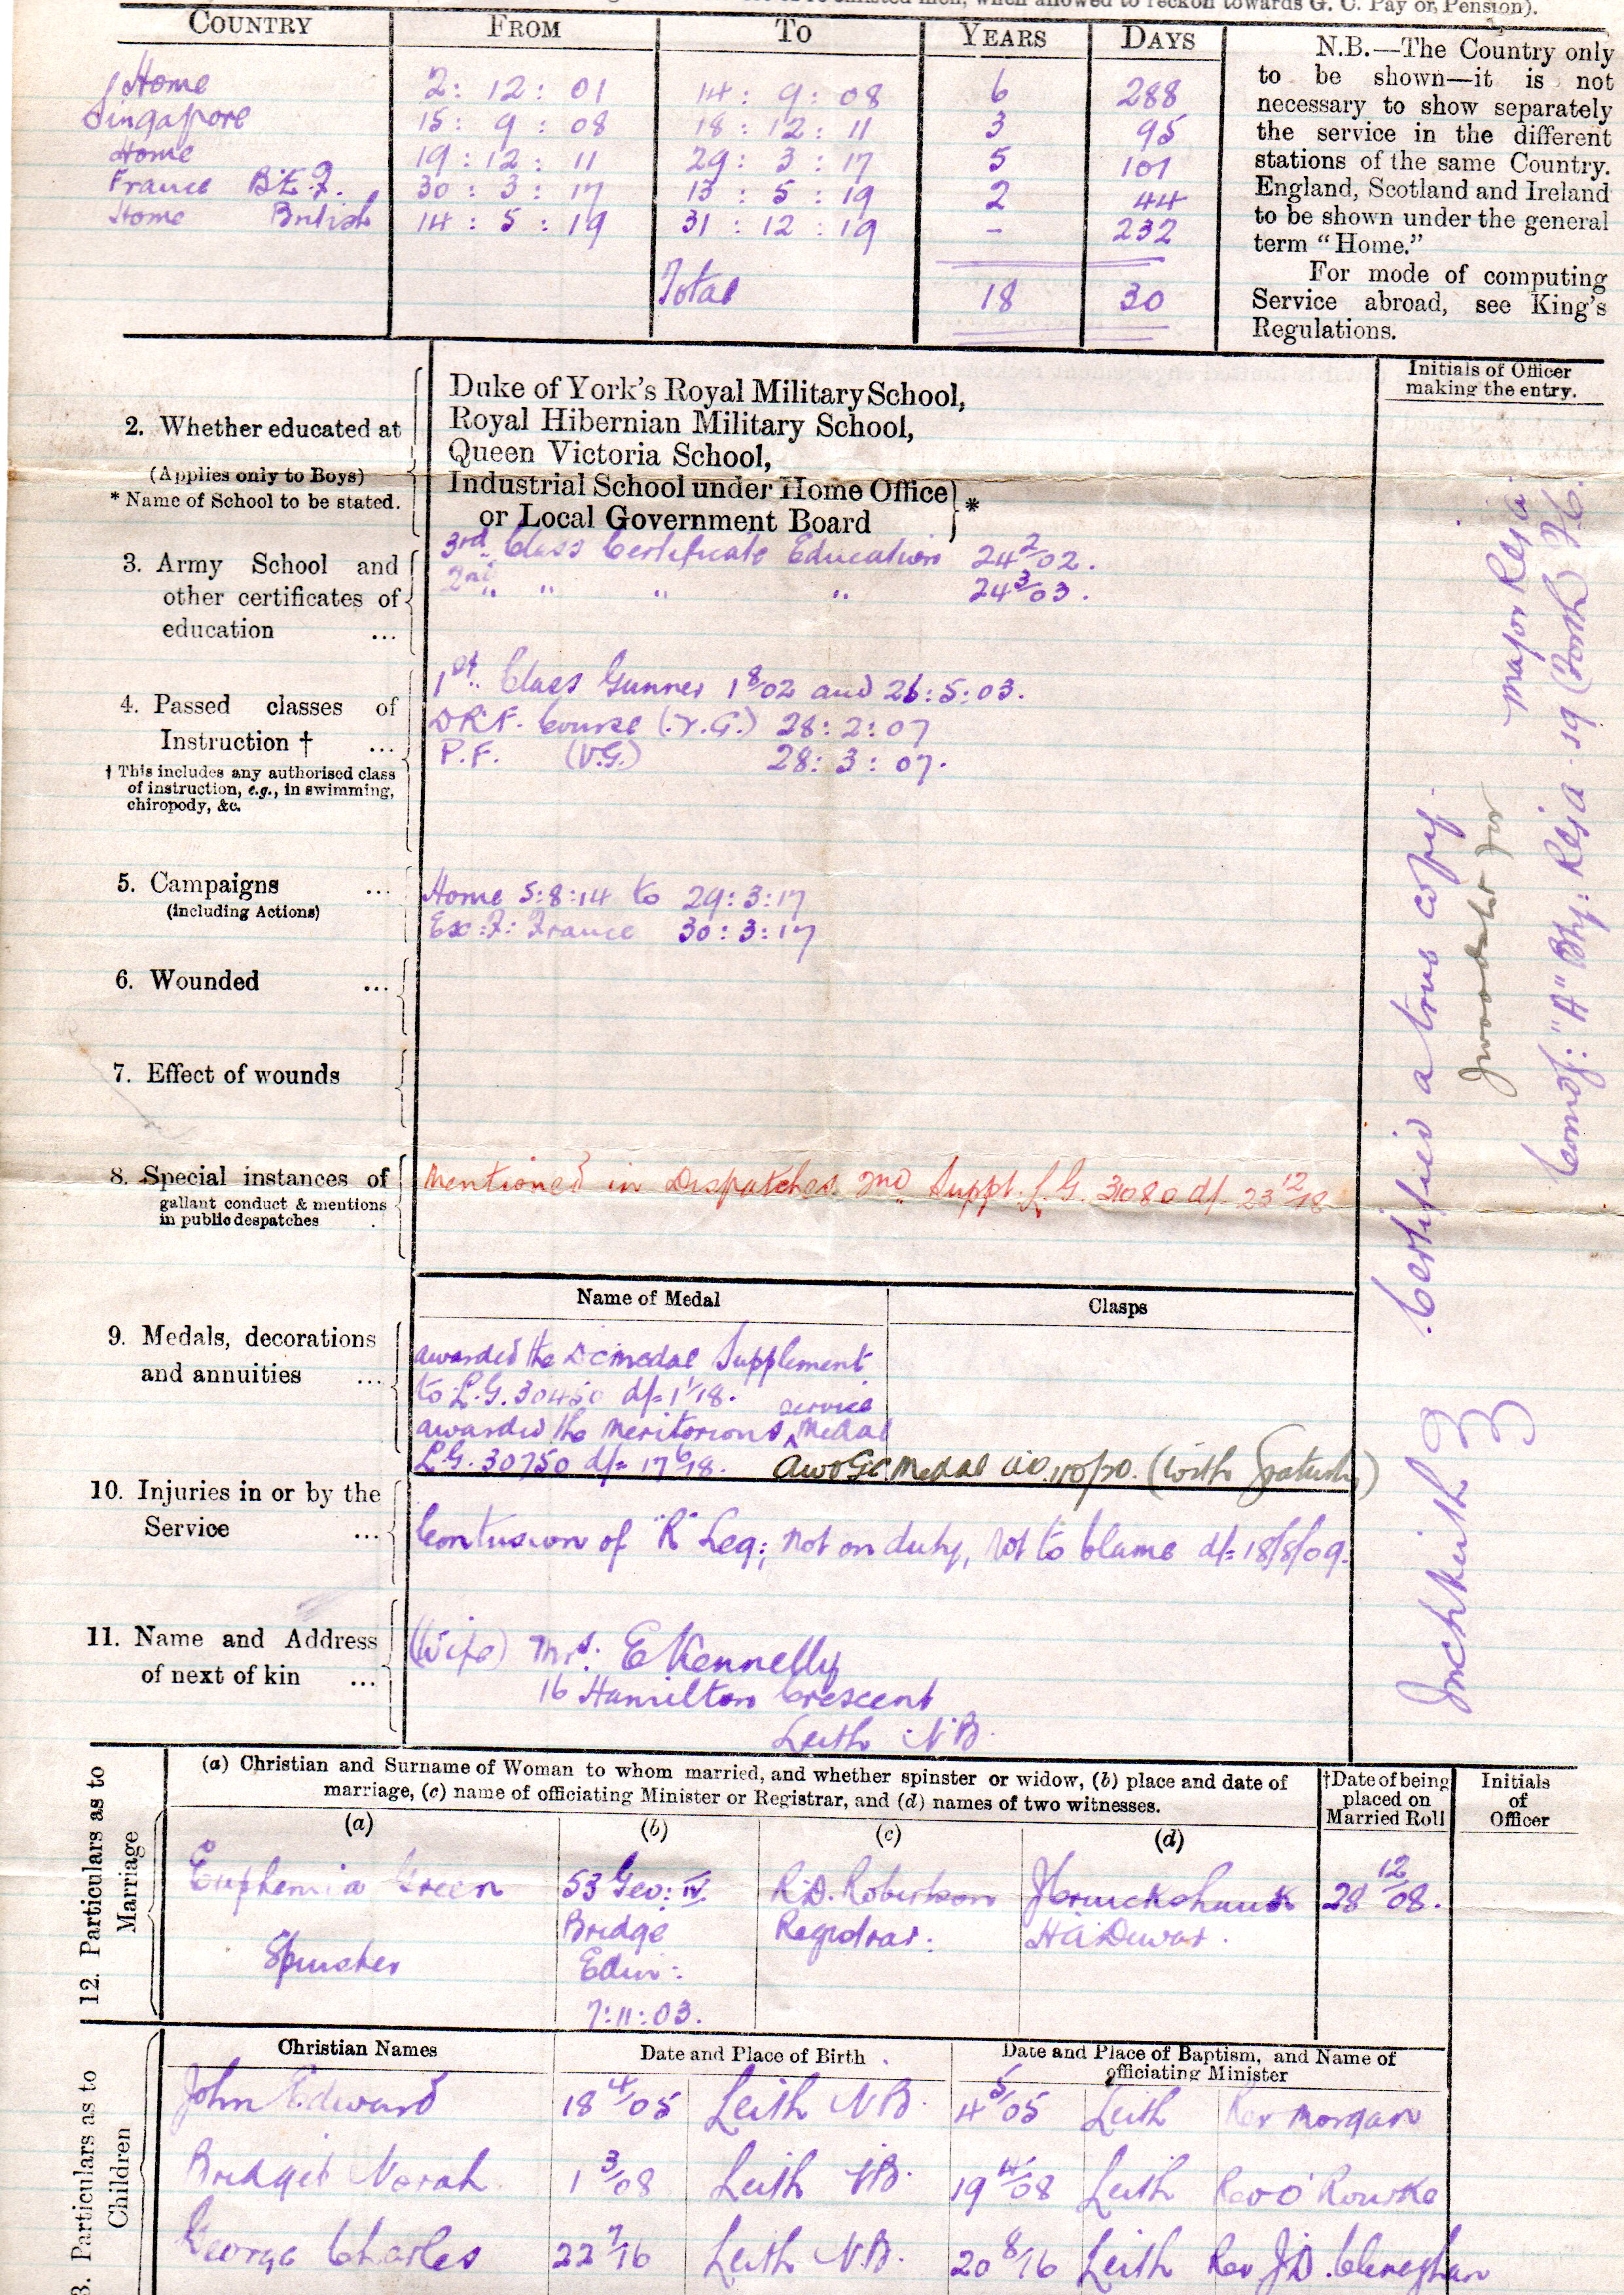 when allowed to reckon towards G. C. Pay or Pension).
COUNTRY FROM TO YEARS DAYS
Home 2: 12: 01 14: 9: 08 6 288
Singapore 15: 9: 08 18: 12: 11 3 95
Home 19: 12: 11 29: 3: 17 5 101
France B.E.F. 30: 3: 17 13: 5: 19 2 44
Home British 14: 5: 19 31: 12: 19 - 232
Total 18 30
N.B.—The Country only
to be shown—it is not
necessary to show separately
the service in the different
stations of the same Country.
England, Scotland and Ireland
to be shown under the general
term "Home."
For mode of computing
Service abroad, see King's
Regulations.
Initials of Officer
making the entry.
2. Whether educated at
(Applies only to Boys)
* Name of School to be stated.
Duke of York's Royal Military School,
Royal Hibernian Military School,
Queen Victoria School,
Industrial School under Home Office
or Local Government Board } *
3. Army School and
other certificates of
education ...
3rd Class Certificate Education 24 2/02.
2nd " " " " 24 3/03.
4. Passed classes of
Instruction † ...
† This includes any authorised class
of instruction, e.g., in swimming,
chiropody, &c.
1st Class Gunner 1 8/02 and 26: 5: 03.
D.R.F. Course (V.G.) 28: 2: 07
P.F. (V.G.) 28: 3: 07.
5. Campaigns ...
(including Actions)
Home 5: 8: 14 to 29: 3: 17
Ex: F: France 30: 3: 17
6. Wounded ...
7. Effect of wounds
8. Special instances of
gallant conduct & mentions
in public despatches
Mentioned in Dispatches 2nd Suppt. L.G. 31080 d/- 23 12/18
9. Medals, decorations
and annuities ...
Name of Medal Clasps
awarded the D C medal Supplement
to L.G. 30450 d/- 1 1/18.
service
awarded the Meritorious ^ Medal
L.G. 30750 d/= 17 6/18.
Medal (with Gratuity)
10. Injuries in or by the
Service ...
Contusion of "R" Leg; not on duty, not to blame d/= 18/8/09.
11. Name and Address
of next of kin ...
(Wife) Mrs: E Kennelly
16 Hamilton Crescent
Leith N.B.
Certified a true copy.
Major R.G.A.
Comdg: "A" Bty: R.G.A. (Forth)
Inchkeith
12. Particulars as to
Marriage
(a) Christian and Surname of Woman to whom married, and whether spinster or widow, (b) place and date of
marriage, (c) name of officiating Minister or Registrar, and (d) names of two witnesses.
†Date of being
placed on
Married Roll
Initials
of
Officer
(a) (b) (c) (d)
Euphemia Green 53 Geo: IV. R.D. Robertson J Cruickshank 28 12/08.
Bridge Registrar: H A Dewar.
Spinster Edin:
7: 11: 03.
3. Particulars as to
Children
Christian Names Date and Place of Birth Date and Place of Baptism, and Name of
officiating Minister
John Edward 18 4/05 Leith N.B. 4 5/05 Leith Rev Morgan
Bridget Norah 1 3/08 Leith N.B. 19 4/08 Leith Rev O'Rourke
George Charles 22 7/16 Leith N.B. 20 8/16 Leith Rev J.D.